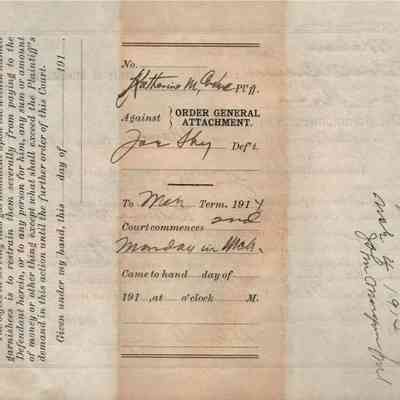 garnishees is to restrain them severally from paying to the
Defendant herein, or to any person for him, any sum or amount
of money or other thing except what shall exceed the Plaintiff's
demand in this action until the further order of this Court.
Given under my hand, this day of 191
No.
Katherine M, Pl'ff.
Against } ORDER GENERAL
ATTACHMENT.
Joe Shy Def't.
To Mch Term, 1914
Court commences 2nd
Monday in Mch.
Came to hand day of
191 , at o'clock M.
Mch 4 1914
John